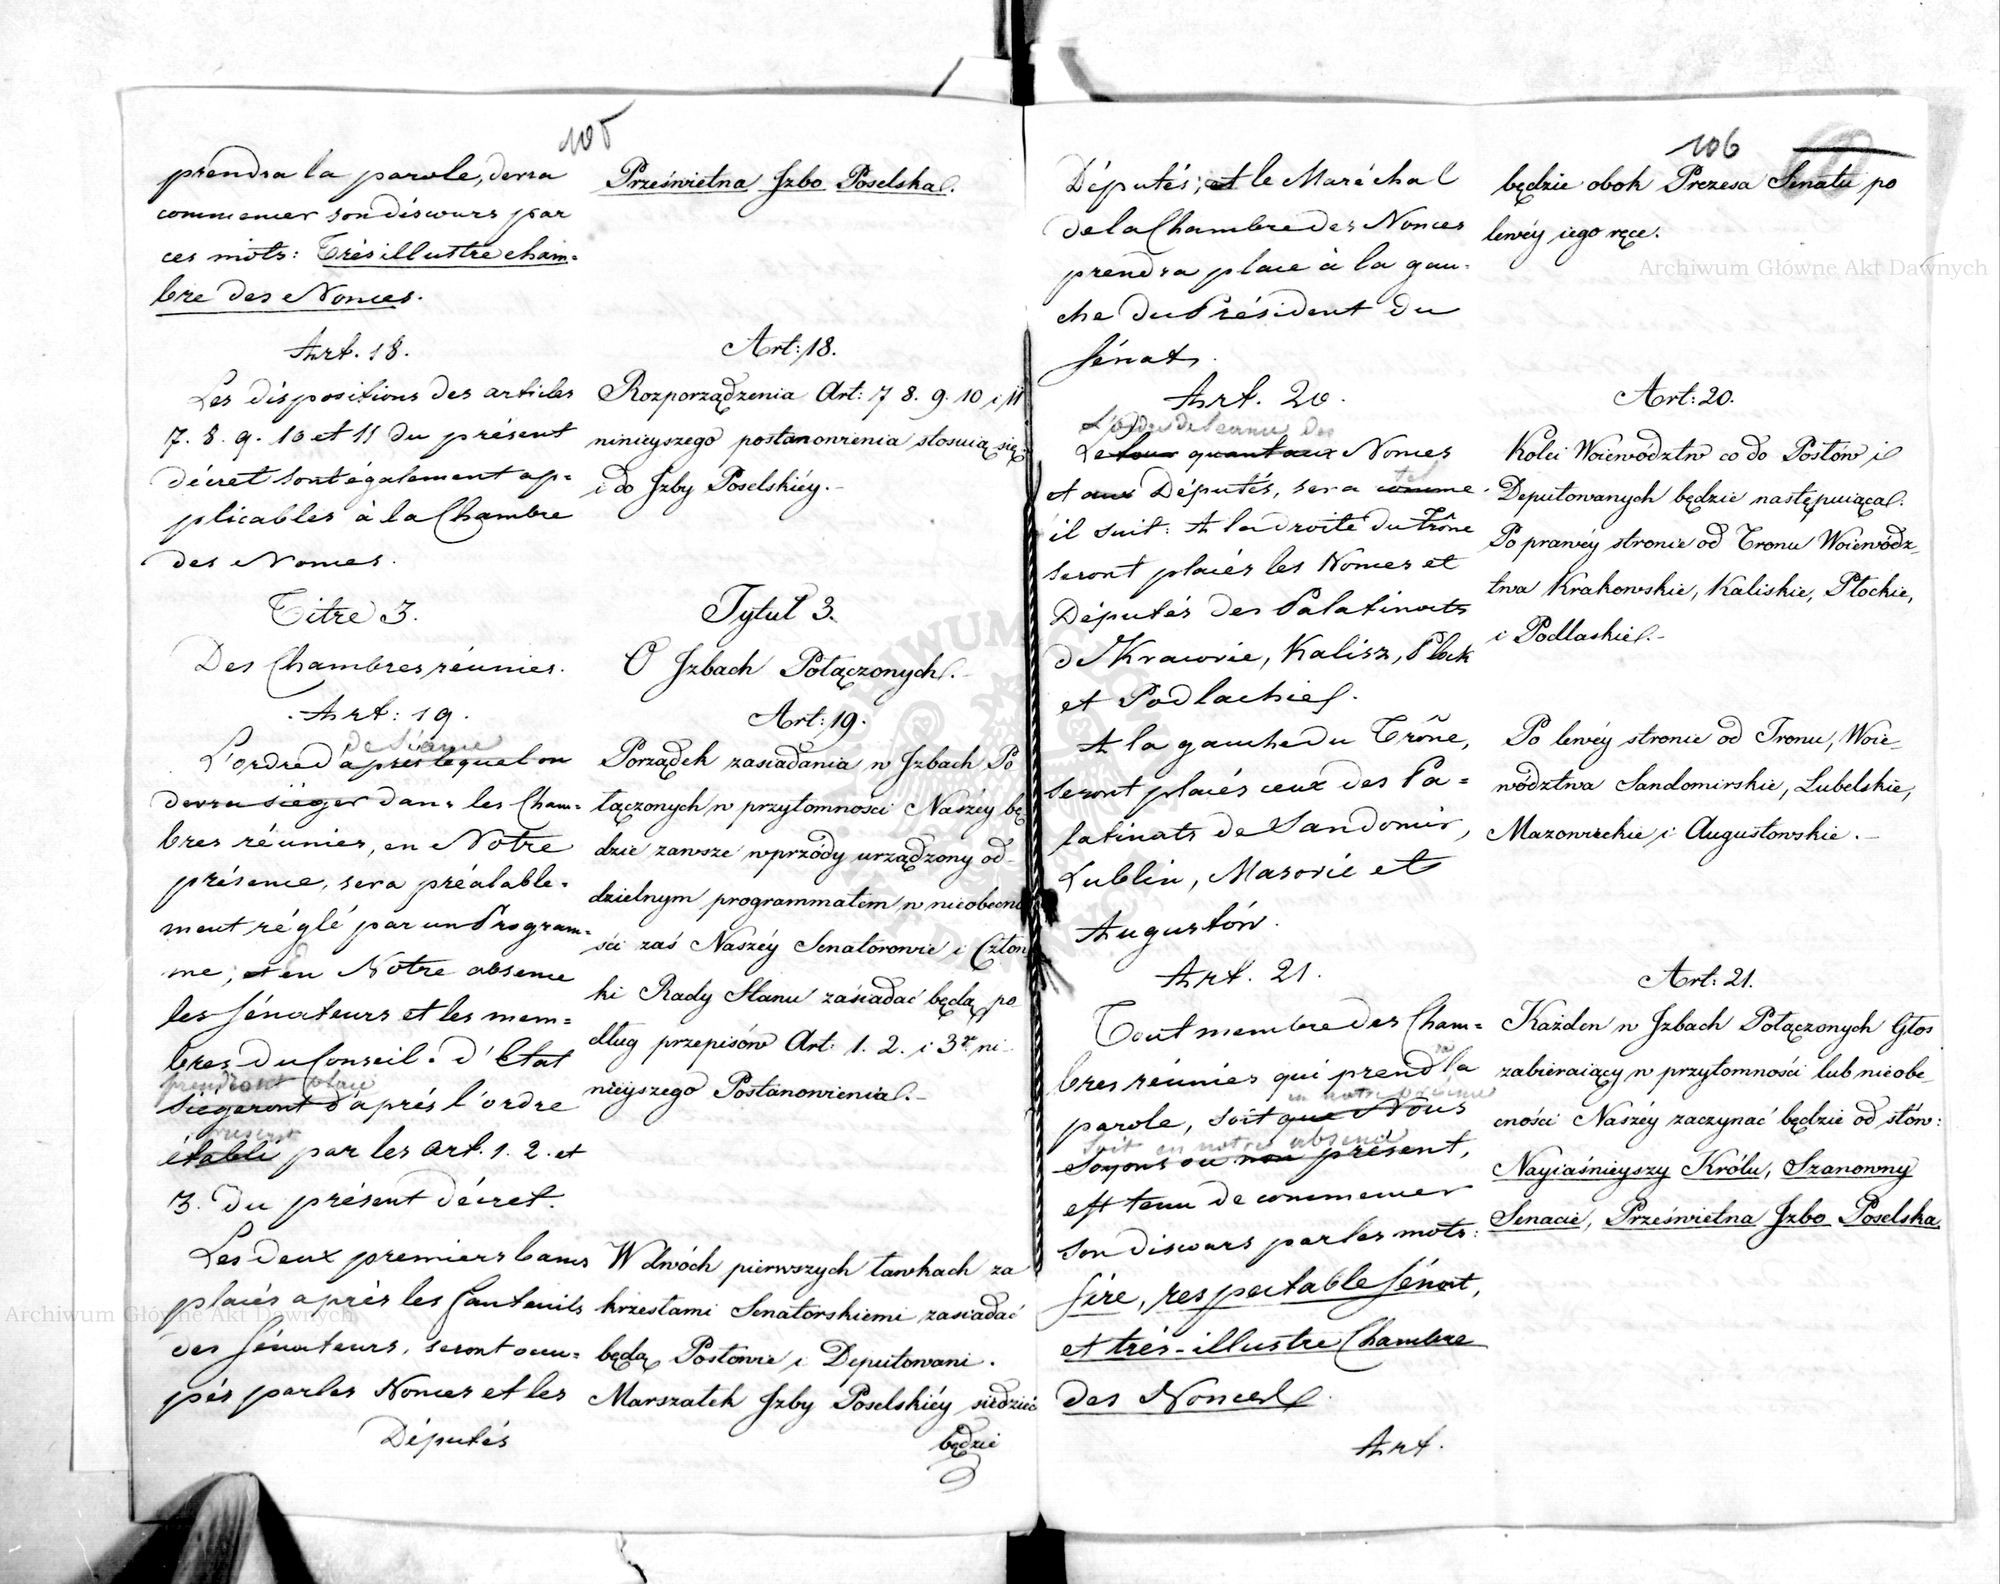 105
prendra la parole, devra
commencer son discours par
ces mots: Très illustre cham=
bre des Nonces.
Art. 18.
Les dispositions des articles
7. 8. 9. 10 et 11 du présent
décret sont également ap=
plicables à la Chambre
des Nonces.
Titre 3.
Des Chambres réunies.
Art: 19.
de séance
L'ordre d'après lequel on
devra siéger dans les Cham=
bres réunies, en Notre
présence, sera préalable=
ment réglé par un Program=
me; et en Notre absence
les Sénateurs et les mem=
bres du Conseil d'Etat
prendront place
siégeront d'après l'ordre
prescrit
établi par les art. 1. 2. et
3. du présent décret.
Les deux premiers bancs
placés après les fauteuils
des Sénateurs, seront occu=
pés par les Nonces et les
Députés
Prześwietna Izbo Poselska.
Art: 18.
Rozporządzenia Art: 7 8. 9. 10 i 11
ninieyszego postanowienia stosuią się
i do Izby Poselskiéy.
Tytuł 3.
O Izbach Połączonych.
Art: 19.
Porządek zasiadania w Izbach Po
łączonych w przytomnosci Naszéy bę
dzie zawsze wprzódy urządzony od-
dzielnym programmatem w nieobecno
ści zaś Naszéy Senatorowie i Człon
ki Rady Stanu zasiadać będą po
dług przepisów Art: 1. 2. i 3go ni-
nieyszego Postanowienia.
W dwóch pierwszych ławkach za
krzesłami Senatorskiemi zasiadać
będą Posłowie i Deputowani.
Marszałek Izby Poselskiéy siedzieć
będzie
106
Députés; et le Maréchal
de la Chambre des Nonces
prendra place à la gau=
che du Président du
Sénat.
Art. 20.
L'ordre de séance des
Le tour quant aux Nonces
tel
et aux Députés, sera comme
il suit: A la droite du Trône
seront placés les Nonces et
Députés des Palatinats
de Kracovie, Kalisz, Plock
et Podlachie.
A la gauche du Trône,
seront placés ceux des Pa=
latinats de Sandomir,
Lublin, Masovie et
Augustów.
Art. 21.
Tout membre des Cham=
ra
bres réunies qui prend la
en notre présence
parole, soit que Nous
soit en notre absence
soyons ou non présent,
est tenu de commencer
son discours par les mots:
Sire, respectable Sénat,
et très-illustre Chambre
des Nonces.
Art.
będzie obok Prezesa Senatu po
lewéy iego ręce.
Art: 20.
Koléi Woiewództw co do Posłów i
Deputowanych będzie następuiąca.
Po prawéy stronie od Tronu Woiewódz-
twa Krakowskie, Kaliskie, Płockie,
i Podlaskie.
Po lewéy stronie od Tronu, Woie-
wództwa Sandomirskie, Lubelskie,
Mazowieckie i Augustowskie.
Art: 21.
Każden w Izbach Połączonych Głos
zabieraiący w przytomności lub nieobe-
cności Naszéy zaczynać będzie od słów:
Nayiaśnieyszy Królu, Szanowny
Senacie, Prześwietna Izbo Poselska
Archiwum Główne Akt Dawnych
Archiwum Główne Akt Dawnych